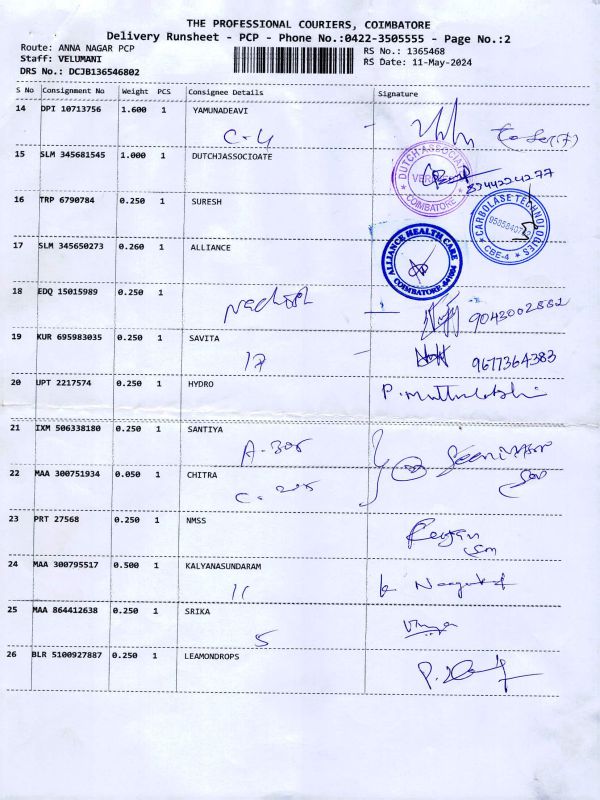 THE PROFESSIONAL COURIERS, COIMBATORE
Delivery Runsheet - PCP - Phone No.:0422-3505555 - Page No.:2
Route: ANNA NAGAR PCP
Staff: VELUMANI
DRS No.: DCJB136546802
RS No.: 1365468
RS Date: 11-May-2024
S No Consignment No Weight PCS Consignee Details Signature
14 DPI 10713756 1.600 1 YAMUNADEAVI
C-4
15 SLM 345681545 1.000 1 DUTCHJASSOCIOATE
DUTCH ASSOCIAT
COIMBATORE
8344224277
16 TRP 6790784 0.250 1 SURESH
CARBOLASE TECHNOLOGIES
CBE-4
17 SLM 345650273 0.260 1 ALLIANCE
ALLIANCE HEALTH CARE
COIMBATORE-641004
18 EDQ 15015989 0.250 1
9043002882
19 KUR 695983035 0.250 1 SAVITA
17
9677364383
20 UPT 2217574 0.250 1 HYDRO
21 IXM 506338180 0.250 1 SANTIYA
A-305
22 MAA 300751934 0.050 1 CHITRA
C-205
23 PRT 27568 0.250 1 NMSS
24 MAA 300795517 0.500 1 KALYANASUNDARAM
11
25 MAA 864412638 0.250 1 SRIKA
5
26 BLR 5100927887 0.250 1 LEAMONDROPS